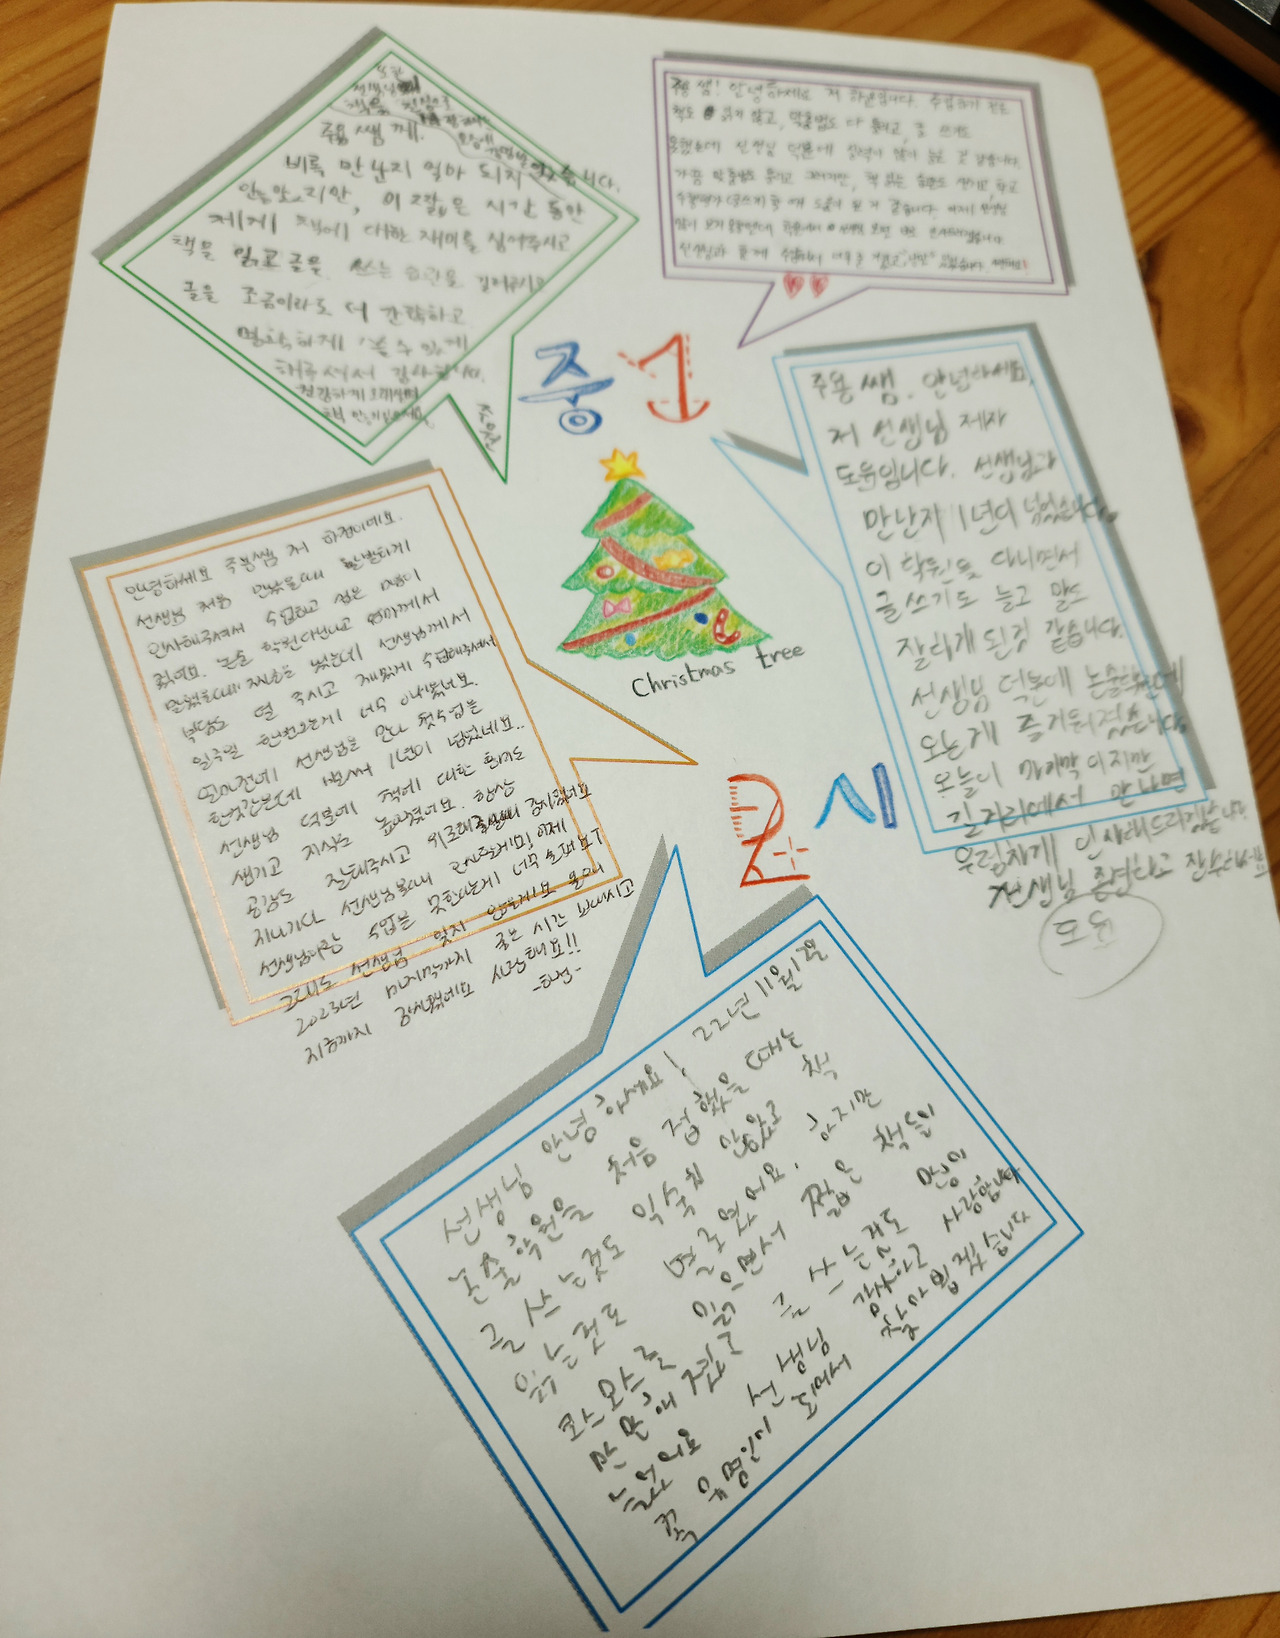 주용쌤께.
비록 만난지 얼마 되지 않았습니다.
이 짧은 시간 동안
제게 책에 대한 재미를 심어주시고
책을 읽고 글을 쓰는 습관을 길러주시고
글을 조금이라도 더 간략하고
명확하게 쓸 수 있게
해주셔서 감사합니다.
쌤! 안녕하세요 저 하윤입니다. 수업하기 전는
책도 읽지 않고, 맞춤법도 다 틀리고, 글 쓰기도
못했는데 선생님 덕분에 실력이 많이 는 것 같습니다.
가끔 맞춤법도 틀리고 그러지만, 책 읽는 습관도 생기고 학교
수행평가 (글쓰기) 할 때 도움이 된 거 같습니다. 이제 선생님
선생님과 함께 수업해서
중1
주용쌤. 안녕하세요.
저 선생님 제자
도윤입니다. 선생님과
만난지 1년이 넘었습니다.
이 학원을 다니면서
글쓰기도 늘고 말도
잘하게 된것 같습니다.
선생님 덕분에 논술학원에
오는게 즐거워졌습니다.
오늘이 마지막이지만
길거리에서 만나면
우렁차게 인사해드리겠습니다.
선생님 존경하고 장수하세요
도윤
Christmas tree
안녕하세요 주용쌤 저 하정이에요.
선생님 처음 만났을때 활발하게
인사해주셔서 수업하고 싶은 마음이
컸어요. 논술 학원다닌다고 엄마께서
말했을때 부담을 느꼈는데 선생님께서
부담도 덜 주시고 재밌게 수업해주셔서
일주일 한번오는게 너무 아쉬웠어요.
얼마전에 선생님을 만나 첫수업을
한것같은데 벌써 1년이 넘었네요..
선생님 덕분에 책에 대한 흥미도
생기고 지식도 높아졌어요. 항상
공감도 잘해주시고 위로해주셨어요
지나가다 선생님볼때 인사할게요! 이제
선생님이랑 수업을 못한다는게 너무 슬퍼요ㅜ
그래도 선생님 잊지 않을게요 올해
2023년 마지막까지 좋은 시간 보내시고
지금까지 감사했어요 사랑해요!!
-하정-
2시
선생님 안녕하세요! 22년 11월 1일
논술학원을 처음 접했을 때는
글 쓰는것도 익숙치 않았고 책
읽는것도 별로였어요. 하지만
코스모스를 읽으면서 짧은 책들이
만만해 졌고 글 쓰는것도 많이
늘었어요 선생님 감사하고 사랑합니다
꼭 유명인이 되어서 찾아뵙겠습니다